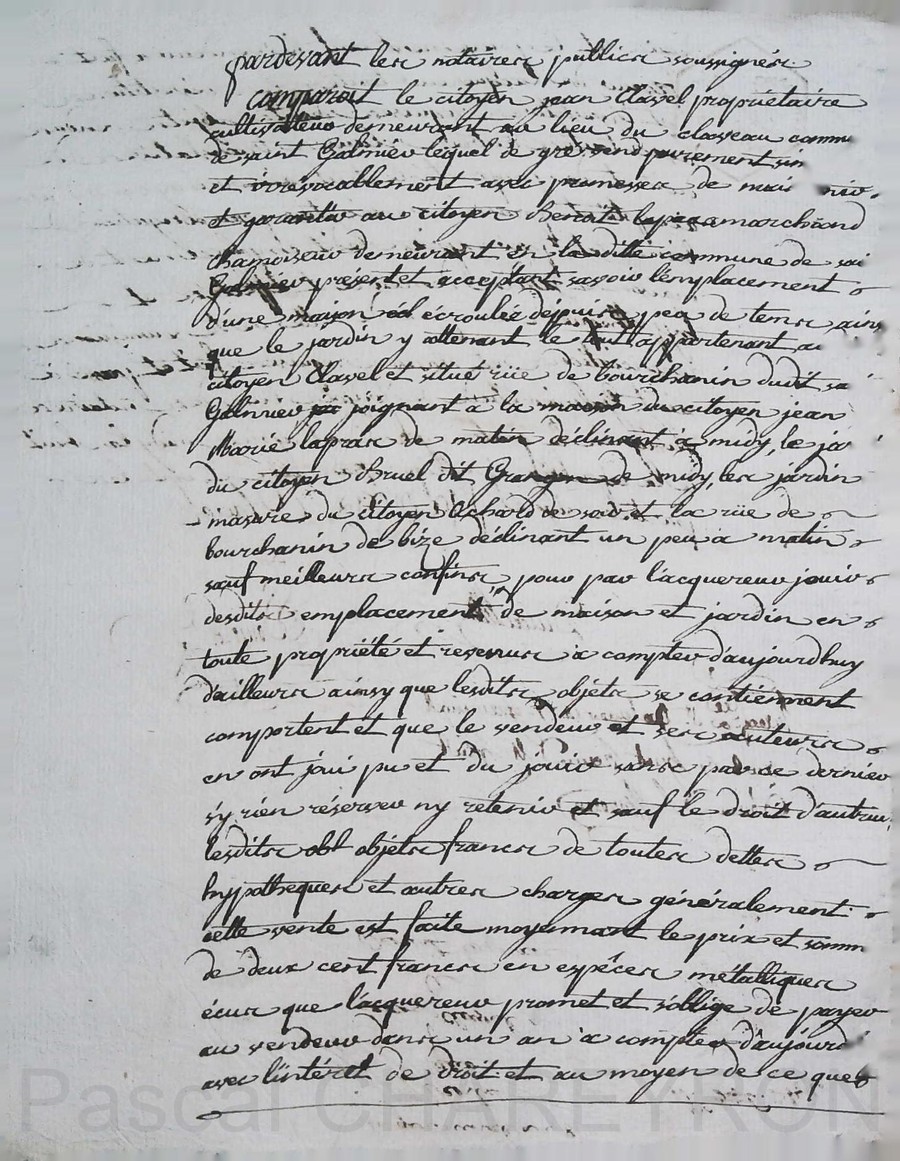 pardevant les notaires publics soussignés
comparoit le citoyen jean Clavel propriétaire
cultivateur demeurant au lieu du claveau commu
de saint Galmier lequel de gré vend purement sin
et irrévocablement avec promesses de main
et garantir au citoyen Benoit marchand
chamoiseur demeurant en la ditte commune de sai
Galmier présent et acceptant savoir l'emplacement
d'une maison écroulée depuis peu de tems ains
que le jardin y attenant le tout appartenant au
citoyen Clavel et situé rüe de bourchanin dudit sa
Galmier joignant a la maison du citoyen jean
Marie lapras de matin déclinant a midy, le ja
du citoyen Bruel dit Grangon de midy, les jardin
masure du citoyen Ochard de soir et la rüe de
bourchanin de bize déclinant un peu a matin
sauf meilleurs confins, pour par l'acquereur jouir
desdits emplacement de maison et jardin en
toute propriété et revenus a compter d'aujourdhuy
d'ailleurs ainsy que lesdits objets se contiennent
comportent et que le vendeur et ses auteurs
en ont joui pu et du jouir sans par ce dernier
s'y rien réserver ny retenir et sauf le droit d'autruy
lesdits obt objets francs de toutes dettes
hypotheques et autres charges généralement
cette vente est faite moyennant le prix et somm
de deux cent francs en espéces métalliques
écus que l'acquereur promet et s'oblige de payer
au vendeur dans un an a compter d'aujourd
avec l'intérêt de droit et au moyen de ce que
Pascal CHAREYRON